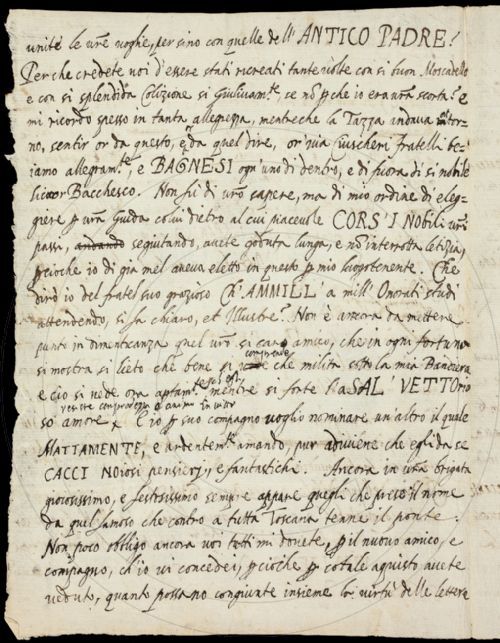 unite le vr̃e voghe, per sino con quelle dell' ANTICO PADRE?
Perche credete voi d'essere stati ricreati tante volte con si buon Moscadello
e con si splendida Colizione si Giulivam.te, se nõ ꝑche io era vr̃a scorta? e
mi ricordo spesso in tanta allegrezza, mentreche la Tazza andava attor-
no, sentir or da questo, e or da quel dire, or via Ciuscheri fratelli fac-
ciamo allegram.te, e BAGNESI ogn' uno di dentro, e di fuora di si nobile
Bacchesco. Non fù di vr̃o sapere, ma di mio ordine di eleg-
giere ꝑ vr̃a Guida colui dietro al cui piacevole CORS' I NObili vr̃i
passi, andando seguitando, avete goduta lunga, e nõ interrotta letizia,
ꝑcioche io di già mel aveva eletto in questo ꝑ mio luogotenente. Che
dirò io del fratel suo grazioso Ch' AMMILL' a mill' Onorati studi
attendendo, si fa chiaro, et Illustre? Non è ancora da mettere
punto in dimenticanza quel vr̃o si caro amico, che in ogni fortuna
si mostra si lieto che bene si comprende che milita sotto la mia Bandiera
e ciò si vede ora aptam.te mentre si forte RaSAL' VETTOrio
so amore
venire compravegga d'animo in vitor
E io ꝑ suo compagno voglio nominare un'altro il quale
MATTAMENTE, e ardentem.te amando, pur adiviene che egli da se
CACCI NOiosi pensieri, e fantastichi. Ancora in vr̃a brigata
gioiosissimo, e festosissimo sempre appare quegli che prese il nome
da quel famoso che contro a tutta Toscana tenne il ponte.
Non poco obbligo ancora voi tutti mi dovete, ꝑ il nuovo amico, e
compagno, ch'io vi concedei, ꝑcioche ꝑ cotale aquisto avete
veduto, quanto possano congiunte insieme la virtù delle lettere